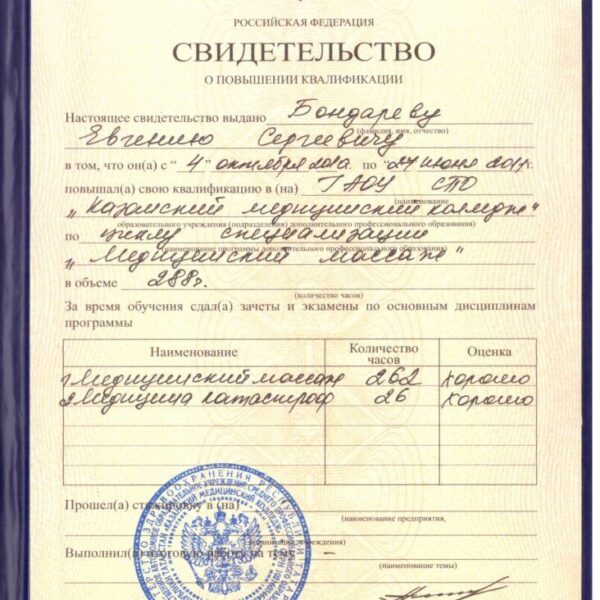 РОССИЙСКАЯ ФЕДЕРАЦИЯ
СВИДЕТЕЛЬСТВО
О ПОВЫШЕНИИ КВАЛИФИКАЦИИ
Настоящее свидетельство выдано Бондареву
(фамилия, имя, отчество)
Евгению Сергеевичу
в том, что он(а) с “ 4 ” октября по “ 24 июня
повышал(а) свою квалификацию в (на) ГАОУ СПО
(наименование
„Казанский медицинский колледж“
образовательного учреждения (подразделения) дополнительного профессионального образования)
по циклу специализации
(наименование программы дополнительного профессионального образования)
„Медицинский массаж“
в объеме 288г.
(количество часов)
За время обучения сдал(а) зачеты и экзамены по основным дисциплинам
программы
Наименование Количество часов Оценка
1 Медицинский массаж 262 хорошо
2 Медицина катастроф 26 хорошо
Прошел(а) стажировку в (на)
(наименование предприятия,
организации, учреждения)
Выполнил(а) итоговую работу на тему –
(наименование темы)